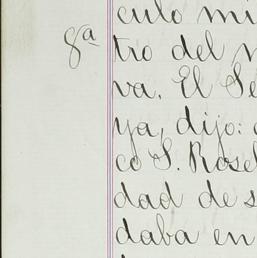 culo mi
8ª
tro del
va. El Se
ya, dijo:
co S. Rosel
dad de s
daba en